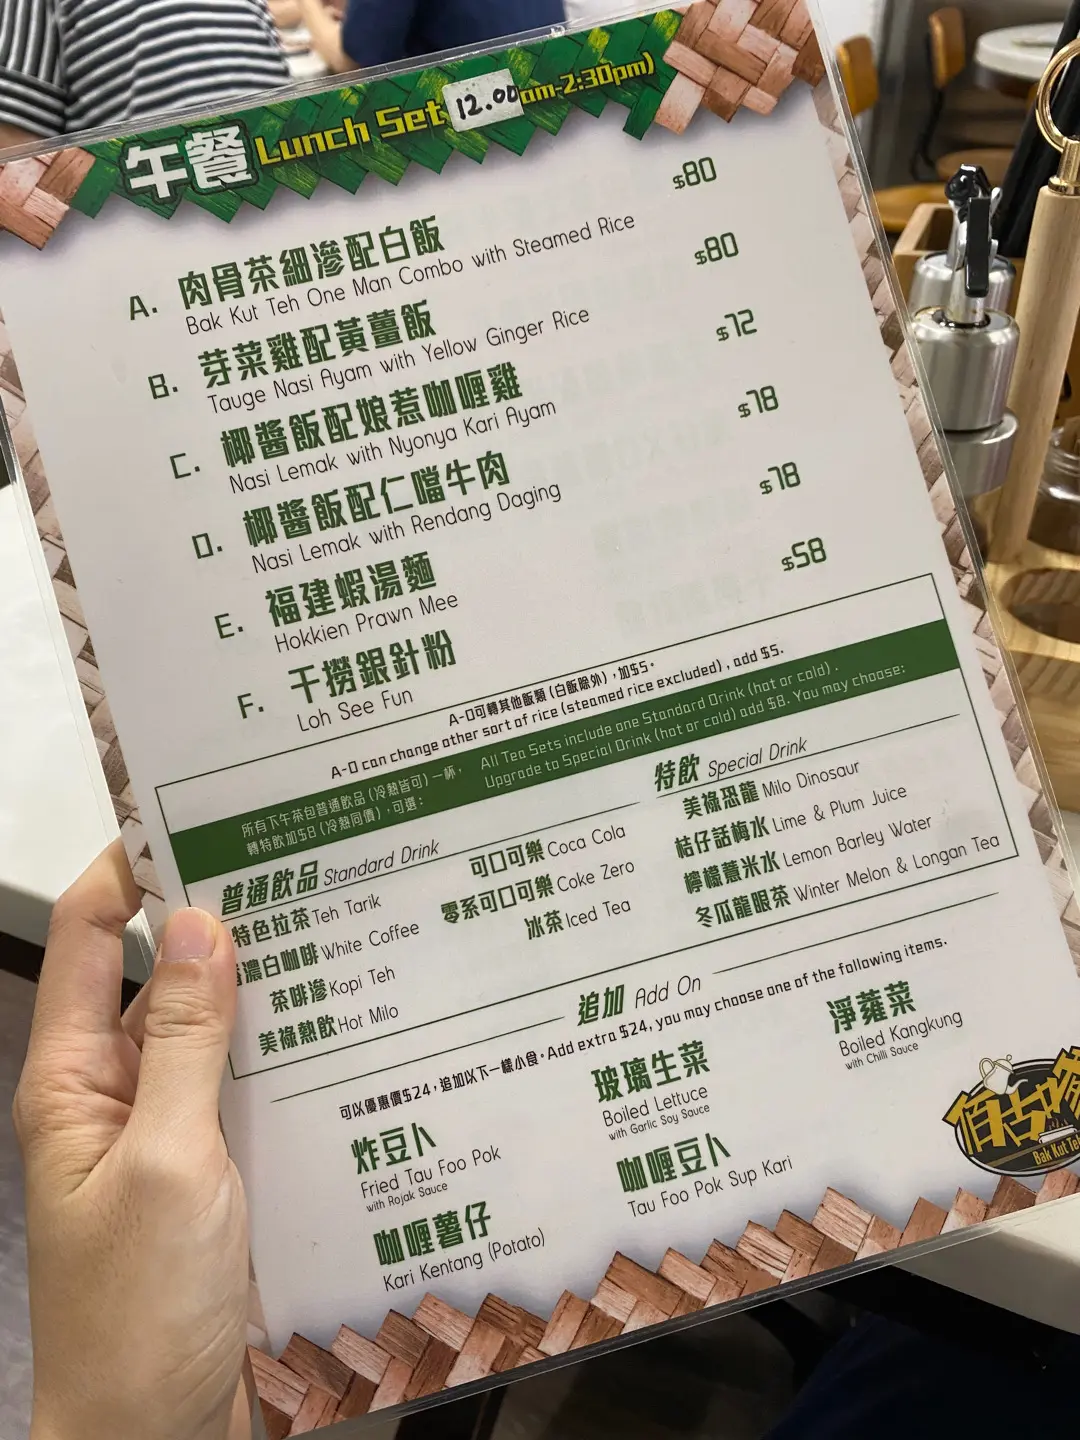 午餐 Lunch Set 12.00am-2:30pm)
A. 肉骨茶細滲配白飯 $80
Bak Kut Teh One Man Combo with Steamed Rice
B. 芽菜雞配黃薑飯 $80
Tauge Nasi Ayam with Yellow Ginger Rice
C. 椰醬飯配娘惹咖喱雞 $72
Nasi Lemak with Nyonya Kari Ayam
D. 椰醬飯配仁噹牛肉 $78
Nasi Lemak with Rendang Daging
E. 福建蝦湯麵 $78
Hokkien Prawn Mee
F. 干撈銀針粉 $58
Loh See Fun
A-D可轉其他飯類(白飯除外),加$5。
A-D can change other sort of rice (steamed rice excluded), add $5.
所有下午茶包普通飲品(冷熱皆可)一杯,
轉特飲加$8(冷熱同價),可選:
All Tea Sets include one Standard Drink (hot or cold).
Upgrade to Special Drink (hot or cold) add $8. You may choose:
普通飲品 Standard Drink
特色拉茶 Teh Tarik
濃白咖啡 White Coffee
茶啡滲 Kopi Teh
美祿熱飲 Hot Milo
可口可樂 Coca Cola
零系可口可樂 Coke Zero
冰茶 Iced Tea
特飲 Special Drink
美祿恐龍 Milo Dinosaur
桔仔話梅水 Lime & Plum Juice
檸檬薏米水 Lemon Barley Water
冬瓜龍眼茶 Winter Melon & Longan Tea
追加 Add On
可以優惠價$24,追加以下一樣小食。Add extra $24, you may choose one of the following items.
炸豆卜
Fried Tau Foo Pok
with Rojak Sauce
玻璃生菜
Boiled Lettuce
with Garlic Soy Sauce
淨蕹菜
Boiled Kangkung
with Chilli Sauce
咖喱薯仔
Kari Kentang (Potato)
咖喱豆卜
Tau Foo Pok Sup Kari
佰古
Bak Kut Te